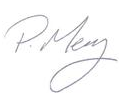 P. Mery